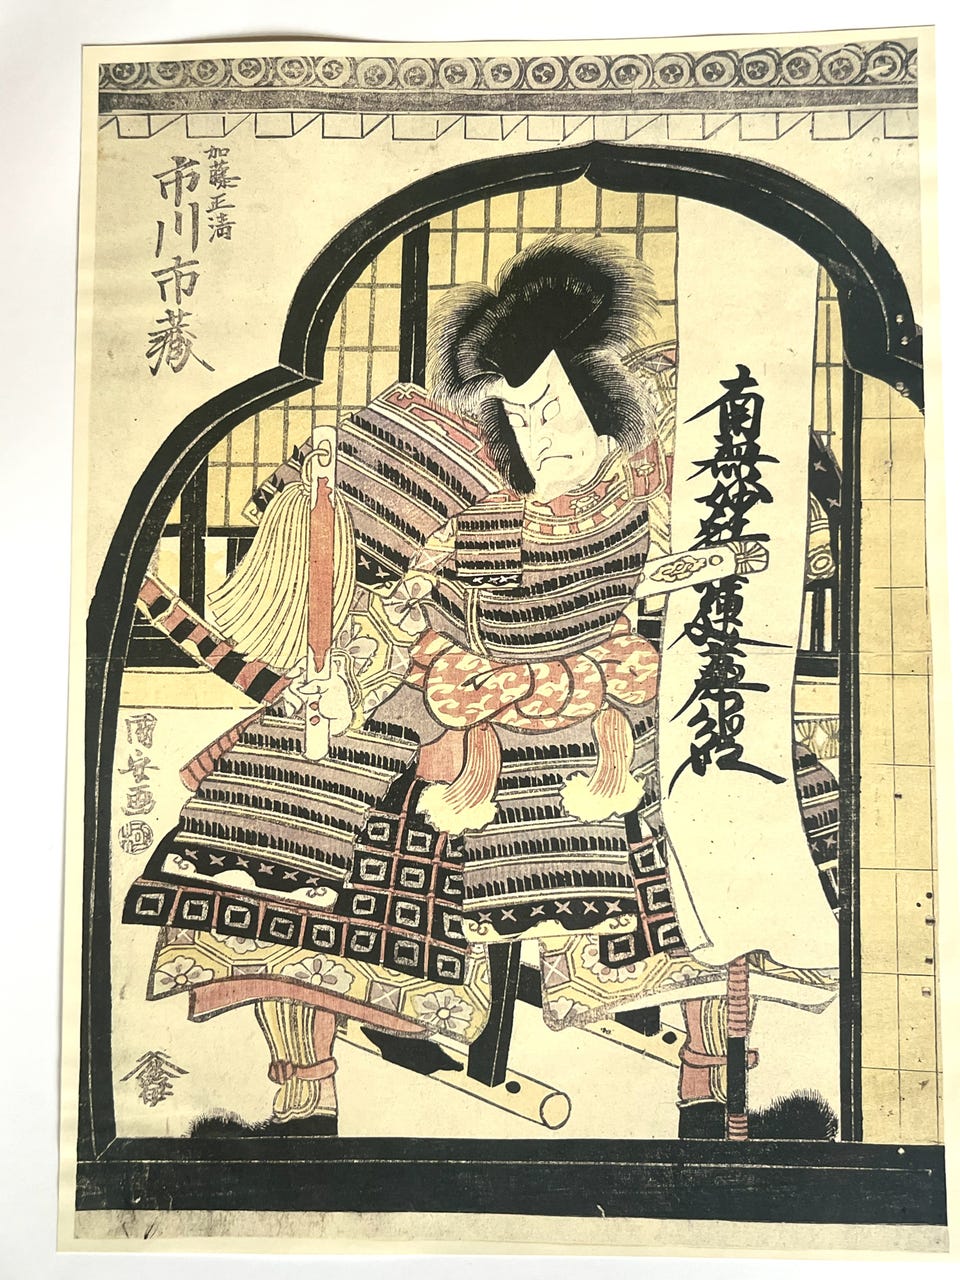 加藤正清
市川市蔵
南無妙法蓮華経
國安画